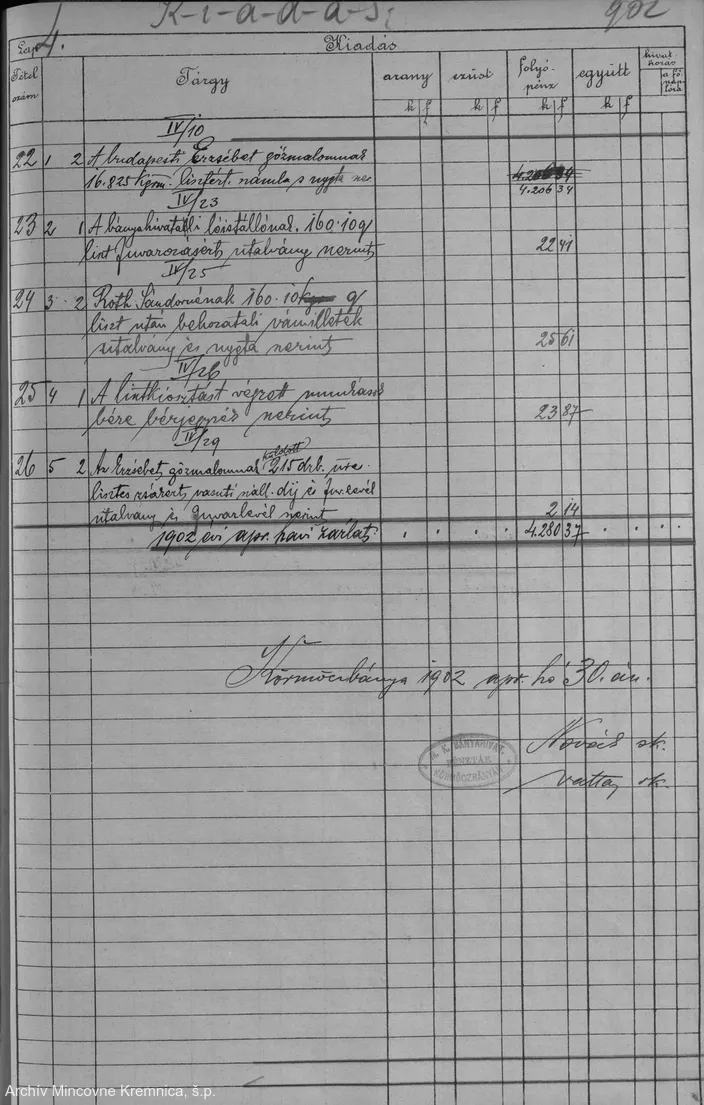 K-i-a-d-á-s; 902
Lap 4. Kiadás
Tétel szám Tárgy arany ezüst folyó-pénz együtt hivat-kozás a fő nap-lóra
k f k f k f k f
IV/10
22 1 2 A budapesti Erzsébet gőzmalomnak
16.825 kgrm. lisztért számla s nygta sze 4.206 34
IV/23
23 2 1 A bányahivatali lóistállónak 160.10 q
liszt fuvarozásért utalvány szerint 22 41
IV/25
24 3 2 Roth Sándornénak 160.10 q
liszt után behozatali vámilleték
utalvány és nygta szerint 25 61
IV/26
25 4 1 A lisztkiosztást végzett munkások
bére bérjegyzék szerint 23 87
IV/29
26 5 2 Az Erzsébet gőzmalomnak küldött 215 drb. üres
lisztes zsákért vasuti száll. díj és fuvlevél
utalvány és fuvarlevél szerint 2 14
1902 évi apr. havi zárlat: 4.280 37
Körmöczbánya 1902 apr. hó 30.án.
Novák sk.
M. K. BÁNYAHIVAT. PÉNZTÁR KÖRMÖCZBÁNYÁN
Vattay sk.
Archív Mincovne Kremnica, š.p.